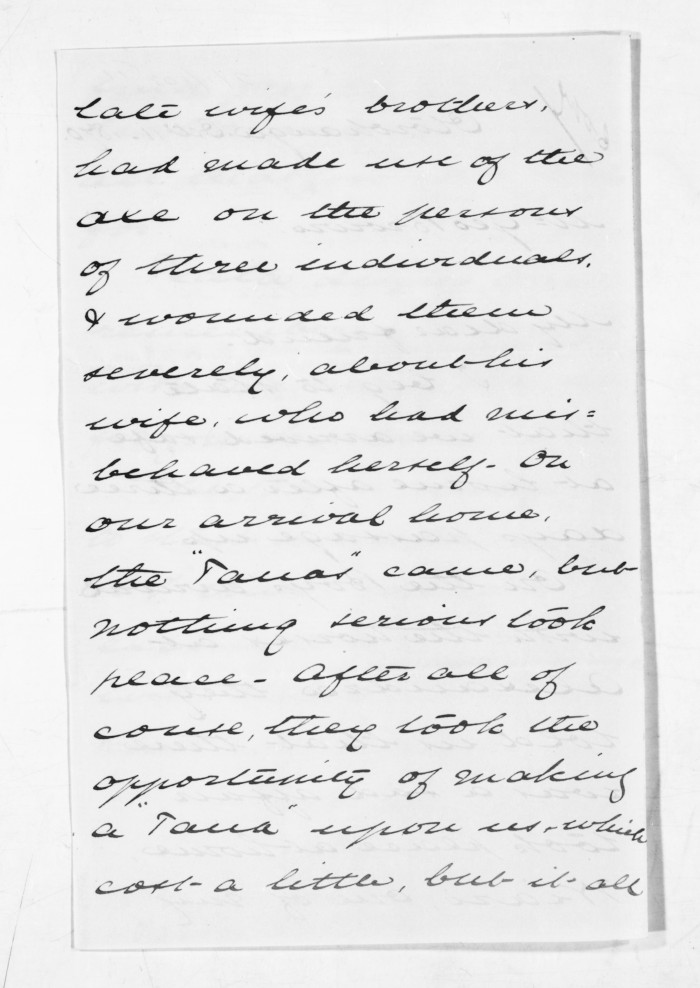 late wife's brothers,
had made use of the
axe on the persons
of three individuals,
& wounded them
severely, about his
wife, who had mis=
behaved herself - On
our arrival home,
the "Tauas" came, but
nothing serious took
place - After all of
couse, they took the
opportunity of making
a "Taua" upon us, which
cost a little, but it all